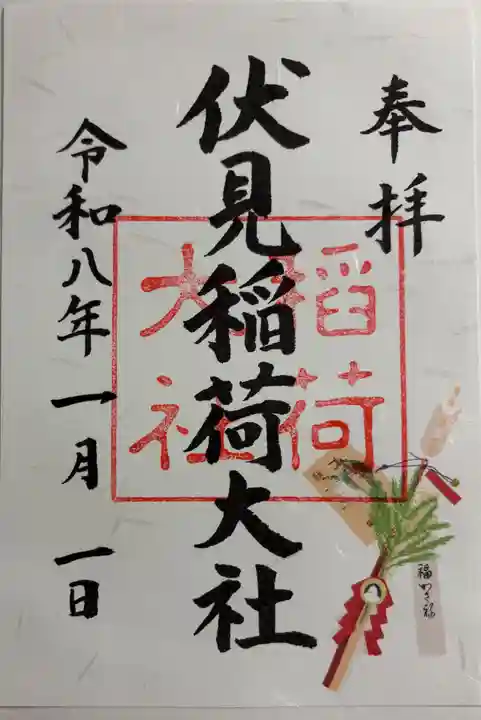 奉拝
伏見稲荷大社
令和八年 一月 一日
稲荷
大社